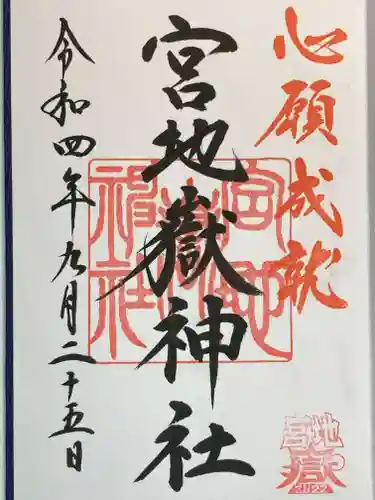 心願成就
宮地嶽神社
令和四年九月二十五日
宮地嶽神社
宮地嶽